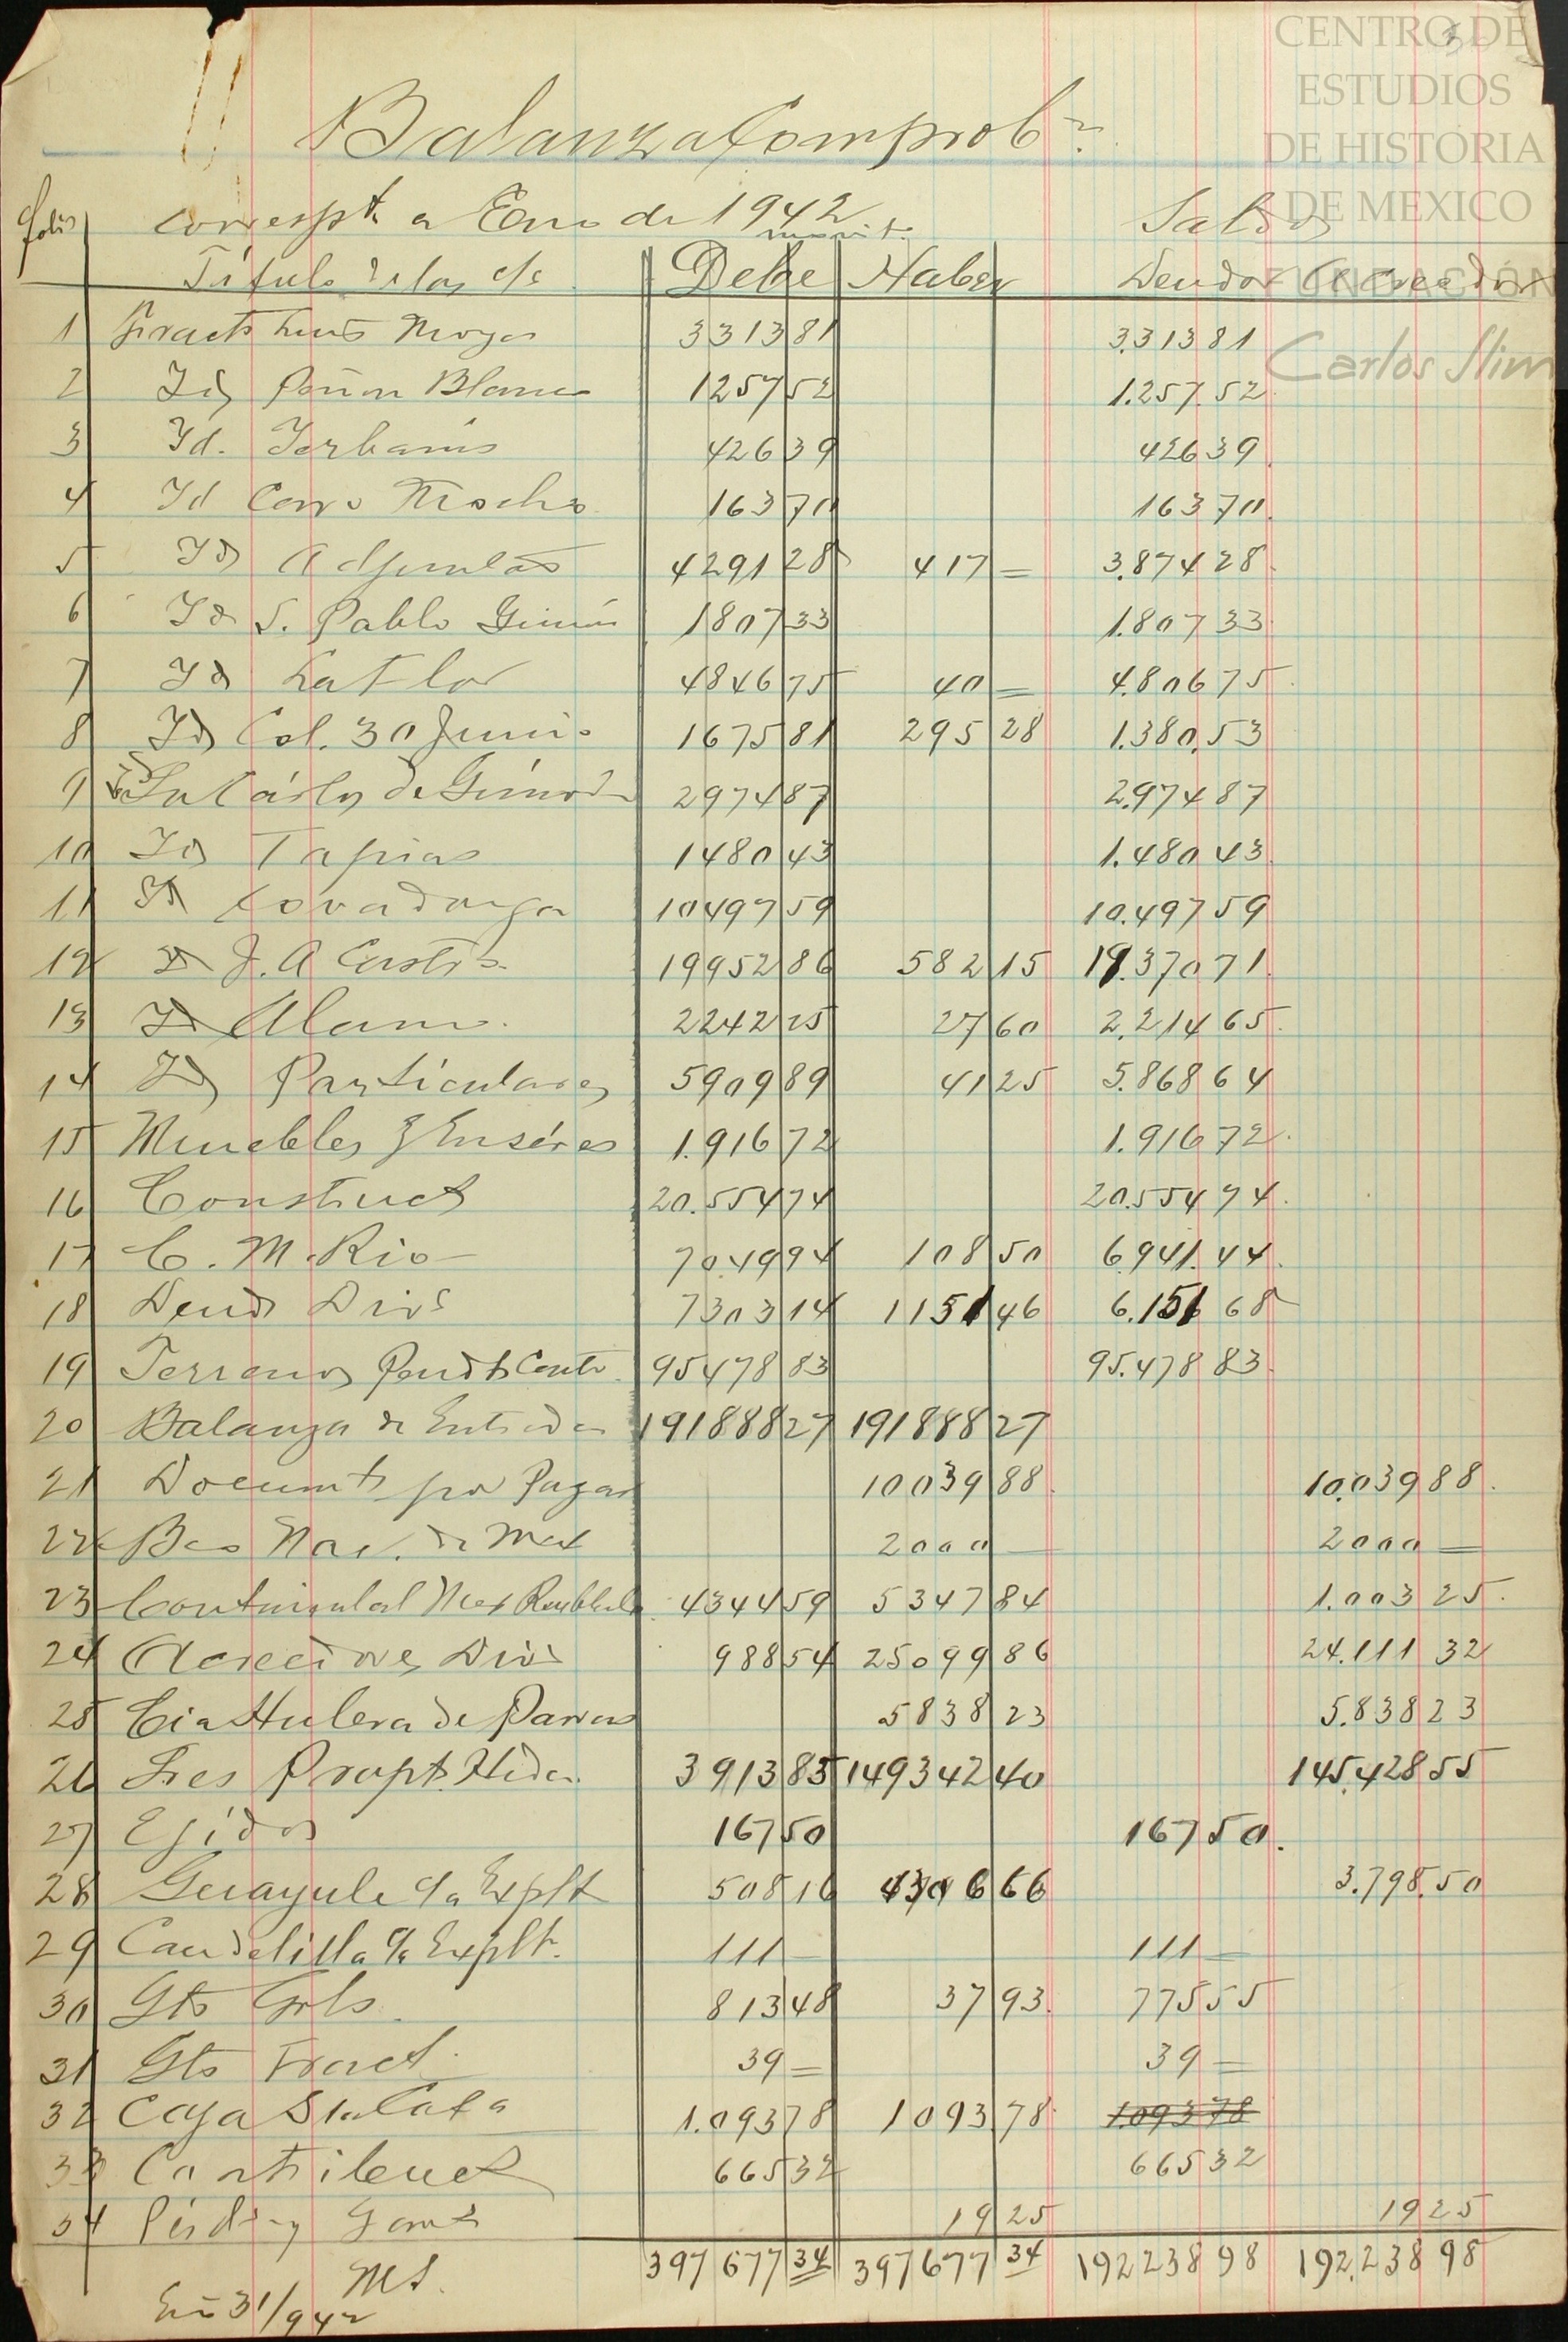 CENTRO DE
ESTUDIOS
DE HISTORIA
DE MEXICO
FUNDACIÓN
Carlos Slim
Balanza Comprobn
folis correspt. a Enro de 1942 movit. Saldos
Título de las c/s Debe Haber Deudor Acreedor
1 Fracts Luis Moya 3313 81 3.313 81
2 Id Peñon Blanco 1257 52 1.257.52
3 Id. Yerbanis 426 39 426 39
4 Id Cerro Mocho 163 70 163 70
5 Id Adjuntas 4291 28 417 = 3.874 28
6 Id S. Pablo 1807 33 1.807 33
7 Id 4846 75 40 = 4.806 75
8 Id Col. 30 Junio 1675 81 295 28 1.380.53
9 Id Sn Cárlos de 2974 87 2.974 87
10 Id Tapias 1480 43 1.480 43
11 Id Covadonga 10497 59 10.497 59
12 Id J. A Castro 19952 86 582 15 19.370 71
13 Id Alamo 2242 25 27 60 2.214 65
14 Id Particulares 5909 89 41 25 5.868 64
15 Muebles y Enséres 1.916 72 1.916 72
16 Construct 20.554 74 20.554 74
17 C. M. Rio 7049 94 108 50 6.941.44
18 Deuds Divs 7303 14 1151 46 6.151 68
19 Terrenos Pendts 95478 83 95.478 83
20 Balanza de Entrada 191888 27 191888 27
21 Documts por Pagar 10039 88 10.039 88
22 Bco Nac. de Mex 2000 — 2000 —
23 Continental Mex Rubber 4344 59 5347 84 1.003 25
24 Acreedores Divs 988 54 25099 86 24.111 32
25 Cia Hulera de Parras 5838 23 5.838 23
26 Sres Propt. Hda. 3913 85 149342 40 145.428 55
27 Ejidos 167 50 167 50
28 Guayule c/a Explt 508 16 4306 66 3.798.50
29 Candelilla c/a Explt. 111 — 111 —
30 Gts Grls. 813 48 37 93 775 55
31 Gts Fract. 39 = 39 =
32 Caja Sta Cata 1.093 78 1093 78 1.093 78
33 Contibuct 665 32 665 32
34 Pérds y Gans 19 25 19 25
397 677 34 397 677 34 192 238 98 192.238 98
MS.
Eno 31/942